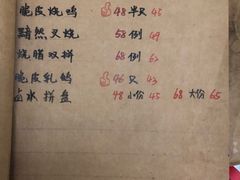 脆皮烧鸭 48 半只 45
黯然叉烧 58 例 49
烧腊双拼 68 例 63
脆皮乳鸽 46 只 43
卤水拼盘 48 小份 45 68 大份 65